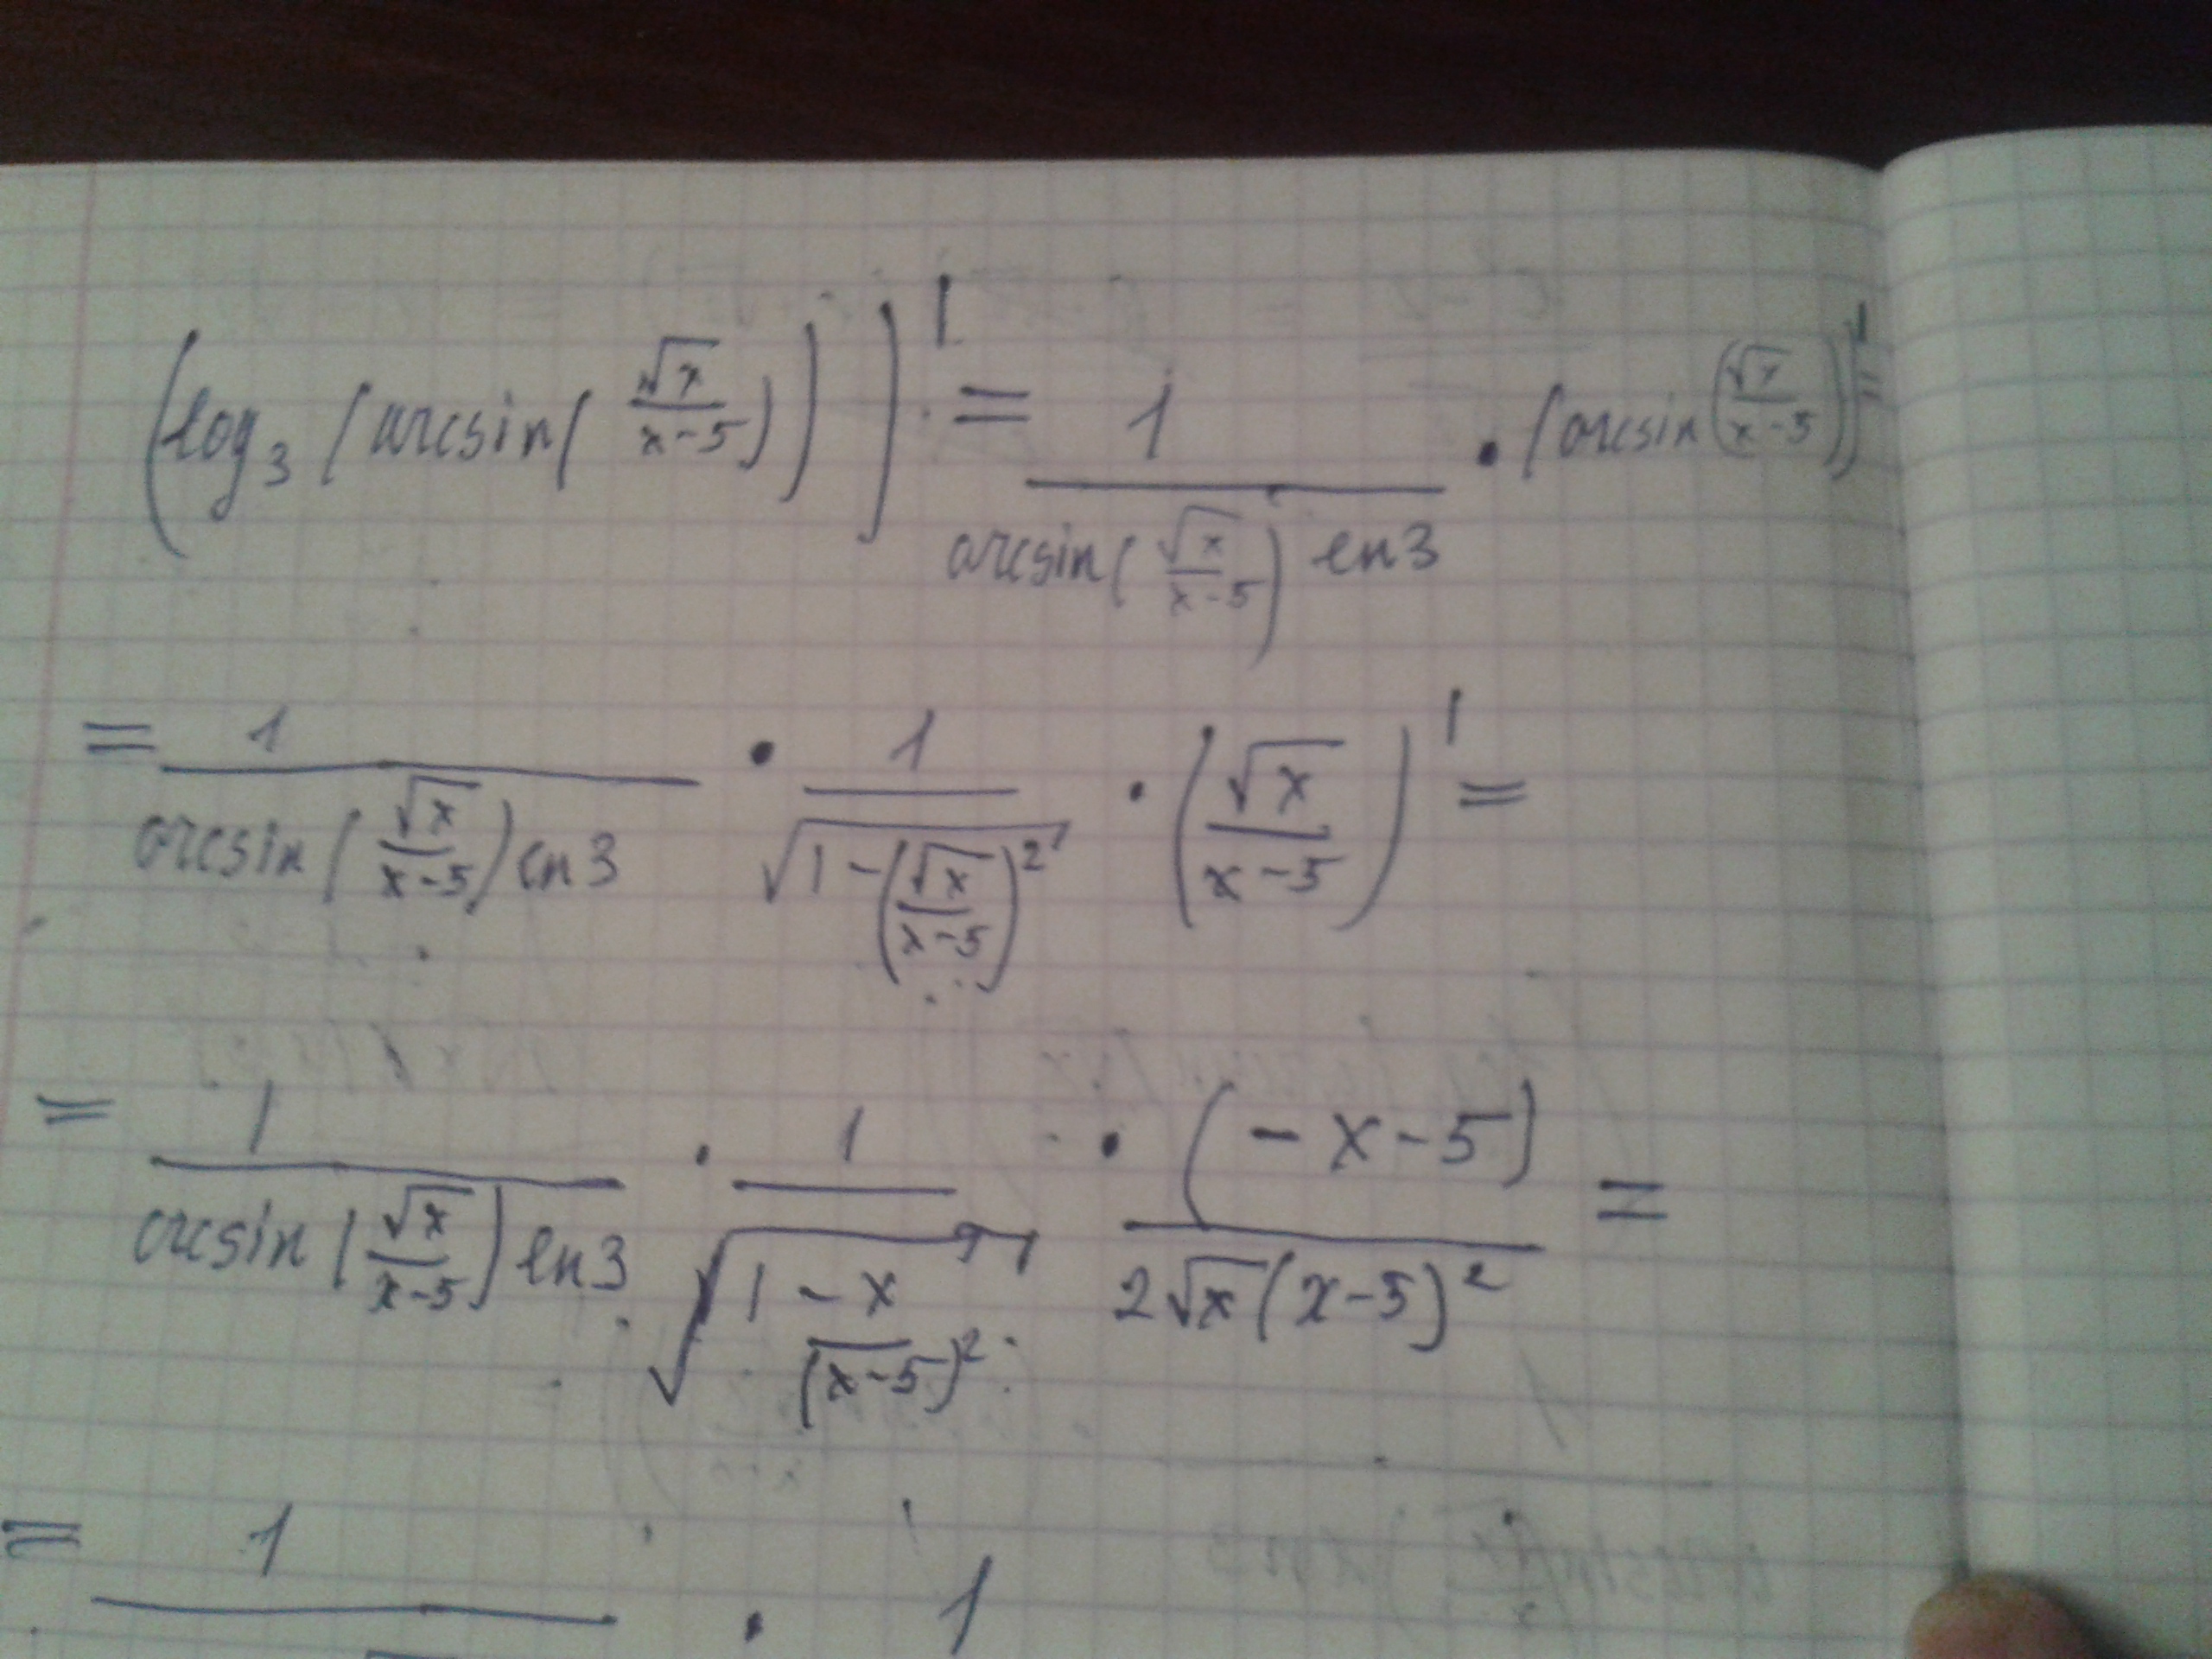 (log₃(arcsin(√x/(x-5))))' = 1/(arcsin(√x/(x-5)) ln3) · (arcsin(√x/(x-5)))' =
= 1/(arcsin(√x/(x-5)) ln3) · 1/√(1-(√x/(x-5))²) · (√x/(x-5))' =
= 1/(arcsin(√x/(x-5)) ln3) · 1/√(1-x/(x-5)²) · (-x-5)/(2√x(x-5)²) =
= 1 · 1